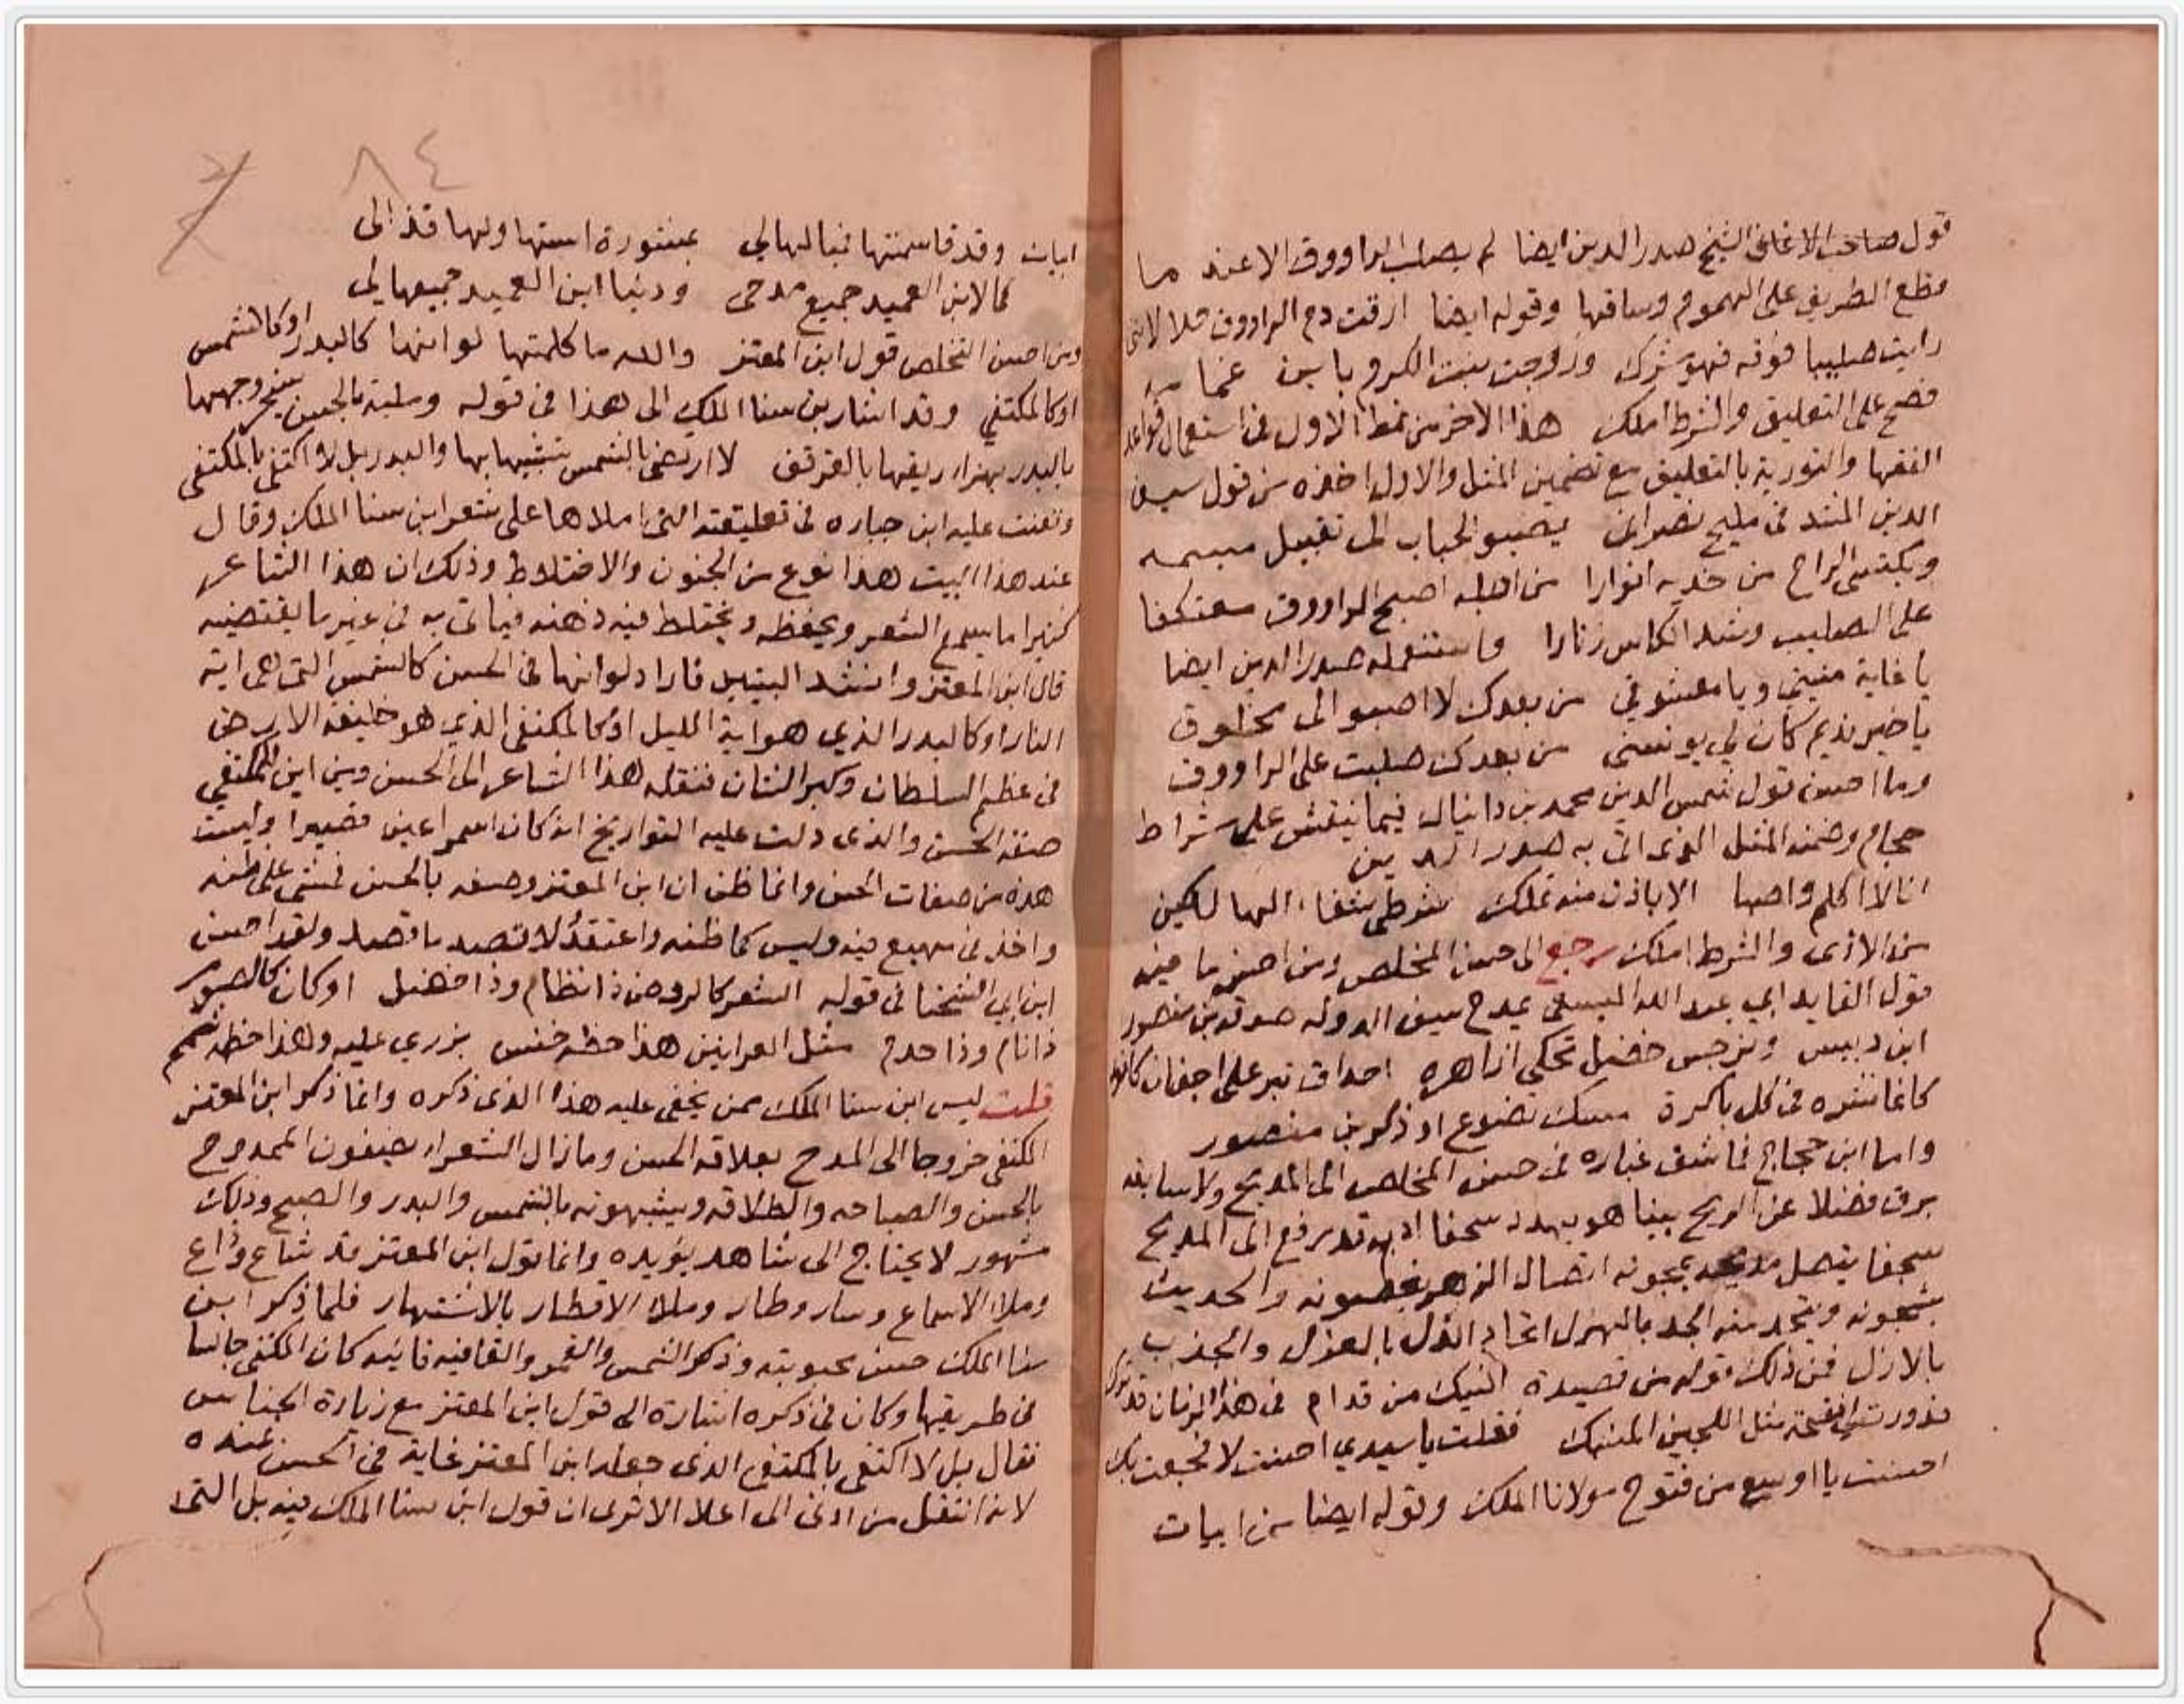 قول صاحب الاغاني الشيخ صدر الدين ايضا لم يصلب الراووق الا عند ما
قطع الطريق على الهموم وساقها وقوله ايضا ارقت دم الراووق حلا لانني
رايت صليبا فوقه فهو مشرك وزوجت بنت الكرم بابن غمامة
فصح على التعليق والشرط املك هذا الاخر من نمط الاول في استعمال قواعد
الفقها والتورية بالتعليق مع تضمين المثل والاول اخذه من قول سيف
الدين المشد في مليح نصراني يصبو الحباب الى تقبيل مبسمه
ويكتسي الراح من خديه انوارا من اجله اصبح الراووق معتكفا
على الصليب وشد الكاس زنارا واستعمله صدر الدين ايضا
يا غاية منيتي ويا معشوقي من بعدك لا اصبو الى مخلوق
يا خير نديم كان لي يونسني من بعدك صلبت على الراووق
وما احسن قول شمس الدين محمد بن دانيال فيما ينقش على شراط
حجام وضمنه المثل الذي اتى به صدر الدين
انا لا اكلم واصبا الا باذن منه تملك شرطي شفاء الها لكين
من الاذى والشرط املك رجع الى حسن المخلص ومن احسن ما فيه
قول القايد ابي عبد الله السبسي يمدح سيف الدولة صدقة بن منصور
ابن دبيس ونرجس خضل تحكي ازاهره احداق تبر على اجفان كافور
كانما نشره في كل باكرة مسك تضوع او ذكر بن منصور
واما ابن حجاج فما شق غباره في حسن المخلص الى المديح ولا سابقه
برق فضلا عن الريح بينا هو يهدد سخفا اذ به قد رفع الى المديح
سجفا يتصل مديحه بمجونه اتصال الزهر بغصونه والحديث
بشجونه ويتحد منه الجد بالهزل اتحاد الذل بالعزل والجذب
بالازل فمن ذلك قوله من قصيدة النيك من قدام في هذا الزمان قد ترك
فدورت لي فقحة مثل اللجين المنسبك فقلت يا سيدي احسنت لا فجعت بك
احسنت يا اوسع من فتوح مولانا الملك وقوله ايضا من ابيات
٨٤
ابيات وقد قاسمتها فبا لهالي بمشورة استها ولها قذالى
كما لابن العميد جميع مدحى ودنيا ابن العميد جميعها لي
ومن احسن التخلص قول ابن المعتز والله ما كلمتها لو انها كالبدر او كالشمس
او كالمكتفي وقد اشار بن سنا الملك الى هذا في قوله وملية بالحسن يسخر وجهها
بالبدر يهزا ريقها بالقرقف لا ارتضي بالشمس تشبيها بها والبدر بل لا اكتفى بالمكتفى
وتعنت عليه ابن جباره في تعليقته التي املاها على شعر ابن سنا الملك وقال
عند هذا البيت هذا نوع من الجنون والاختلاط وذلك ان هذا الشاعر
كثيرا ما يسمع الشعر ويحفظه ويختلط فيه ذهنه فياتى به في غير ما يقتضيه
قال ابن المعتز وانشد البيتين فاراد لو انها في الحسن كالشمس التي هى اية
النار او كالبدر الذي هو اية الليل او كالمكتفى الذي هو خليفة الارض
في عظم السلطان وكبر الشان فنقله هذا الشاعر الى الحسن ومن اين للمكتفي
صفة الحسن والذى دلت عليه التواريخ انه كان اسمر اعين قصيرا وليست
هذه من صفات الحسن وانما ظن ان ابن المعتز وصفه بالحسن فمشى على ظنه
واخذ في مهيع فيه وليس كما ظنه واعتقده لا قصيد ما قصد ولقد احسن
ابن ابي الشخنا في قوله الشعر كالروض ذا نظام وذا خضل او كالصور
ذا نام وذا حدم مثل العرانين هذا حظه خنس يزري عليه وهذا حظه شمم
قلت ليس ابن سنا الملك ممن يخفى عليه هذا الذي ذكره وانما ذكر ابن المعتز
المكتفى خروجا الى المدح بعلاقة الحسن وما زال الشعراء يصفون الممدوح
بالحسن والصباحه والطلاقه ويشبهونه بالشمس والبدر والصبح وذلك
مشهور لا يحتاج الى شاهد يؤيده وانما قول ابن المعتز قد شاع وذاع
وملا الاسماع وسار وطار وملا الاقطار بالاشتهار فلما ذكر ابن
سنا الملك حسن محبوبته وذكر الشمس والقمر والقافيه فائيه كان المكتفى جالسا
في طريقها وكان في ذكره اشارة الى قول ابن المعتز مع زيادة الجناس
فقال بل لا اكتفى بالمكتفى الذى جعله ابن المعتز غاية في الحسن عنده
لانه انتقل من ادنى الى اعلا الا ترى ان قول ابن سنا الملك فيه بل التى